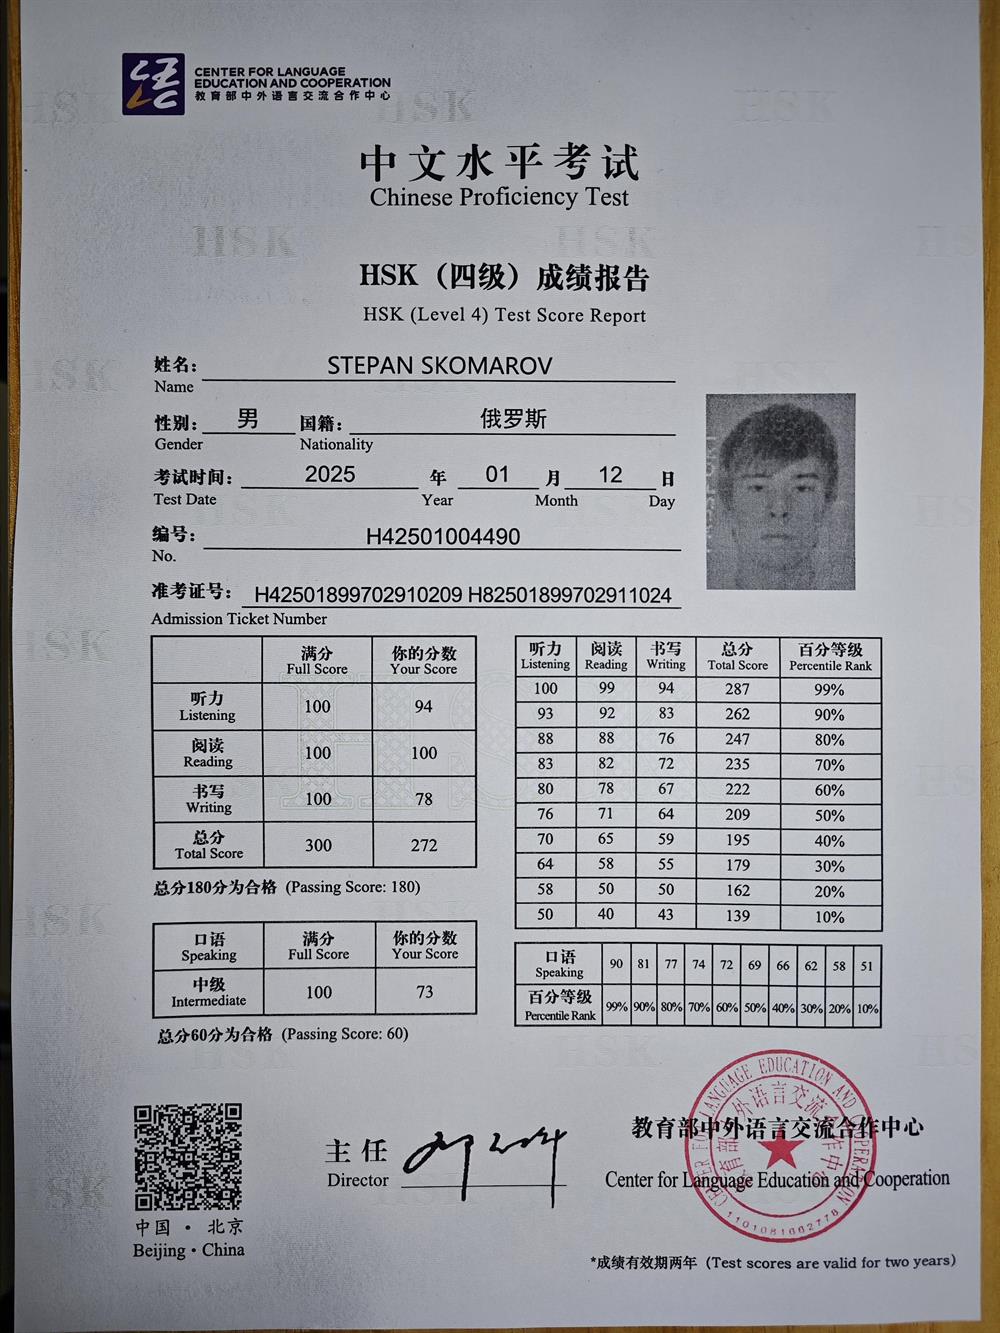 CENTER FOR LANGUAGE
EDUCATION AND COOPERATION
教育部中外语言交流合作中心
中文水平考试
Chinese Proficiency Test
HSK（四级）成绩报告
HSK (Level 4) Test Score Report
姓名： STEPAN SKOMAROV
Name
性别： 男 国籍： 俄罗斯
Gender Nationality
考试时间： 2025 年 01 月 12 日
Test Date Year Month Day
编号： H42501004490
No.
准考证号： H42501899702910209 H82501899702911024
Admission Ticket Number
满分 你的分数
Full Score Your Score
听力 100 94
Listening
阅读 100 100
Reading
书写 100 78
Writing
总分 300 272
Total Score
总分180分为合格 (Passing Score: 180)
口语 满分 你的分数
Speaking Full Score Your Score
中级 100 73
Intermediate
总分60分为合格 (Passing Score: 60)
听力 阅读 书写 总分 百分等级
Listening Reading Writing Total Score Percentile Rank
100 99 94 287 99%
93 92 83 262 90%
88 88 76 247 80%
83 82 72 235 70%
80 78 67 222 60%
76 71 64 209 50%
70 65 59 195 40%
64 58 55 179 30%
58 50 50 162 20%
50 40 43 139 10%
口语 90 81 77 74 72 69 66 62 58 51
Speaking
百分等级 99% 90% 80% 70% 60% 50% 40% 30% 20% 10%
Percentile Rank
中国 · 北京
Beijing · China
主任
Director
教育部中外语言交流合作中心
Center for Language Education and Cooperation
CENTER FOR LANGUAGE EDUCATION AND COOPERATION
教育部中外语言交流合作中心
1101081662778
*成绩有效期两年（Test scores are valid for two years）